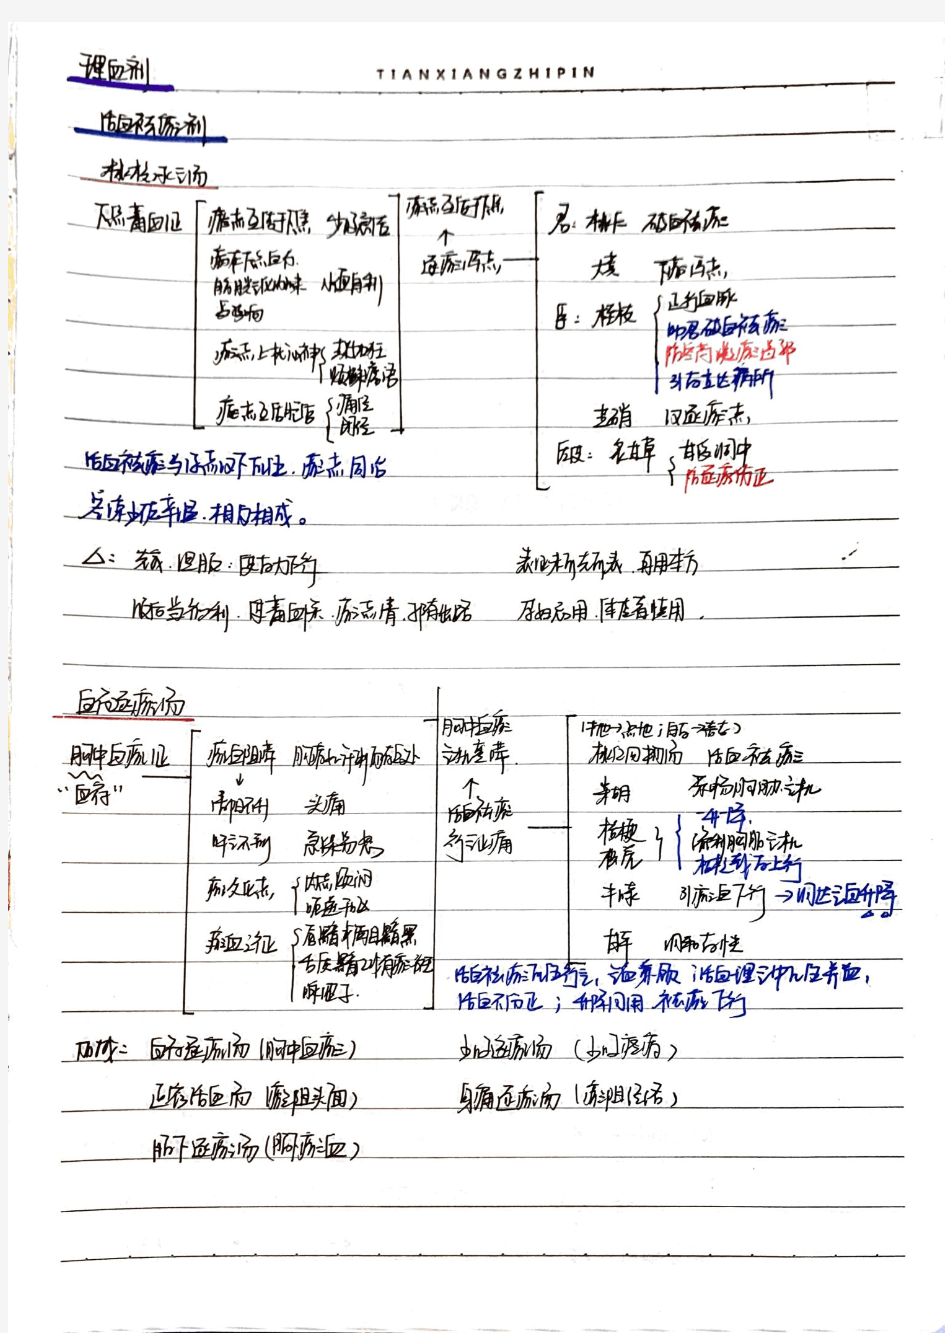 理血剂
TIANXIANGZHIPIN
活血祛瘀剂
桃核承气汤
下焦蓄血证
瘀热互结于下焦 少腹急结
瘀在下焦血分
膀胱气化未
受影响 小便自利
瘀热上扰心神 其人如狂
烦躁谵语
瘀热互结胞宫 痛经
闭经
瘀热互结于下焦
↑
逐瘀泻热
君: 桃仁 破血祛瘀
大黄 下瘀泻热
臣: 桂枝 通行血脉
助君破血祛瘀
防寒药
引药直达病所
芒硝 以逐瘀热
佐使: 炙甘草 甘缓调中
防逐瘀伤正
活血祛瘀与泻热攻下同证, 瘀热同治
寒凉少佐辛温, 相反相成。
△: 先煎、温服、服后大下行
表证未解先解表, 再用本方
服后当微利, 使蓄血除、瘀热清、邪有出路
孕妇忌用, 体虚者慎用.
血府逐瘀汤
胸中血瘀证
"血府"
瘀血阻滞 胸痛如针刺而有定处
↓
清阳不升 头痛
肝气不利 急躁易怒
瘀久化热 内热烦闷
瘀血之征 唇暗或两目暗黑
舌质暗红有瘀斑
胸中血瘀
气机壅滞
↑
活血祛瘀
行气止痛
桃红四物汤 活血祛瘀
柴胡 疏畅胸胁气机
桔梗
枳壳
一升一降
宽利胸膈气机
桔梗载药上行
牛膝 引瘀血下行 → 调达气血升降
甘草 调和药性
活血祛瘀配伍行气, 气血兼顾; 活血理气中配伍养血,
活血不伤正; 升降同用 祛瘀下行
血府逐瘀汤 (胸中血瘀)
少腹逐瘀汤 (少腹寒瘀)
通窍活血汤 (瘀阻头面)
身痛逐瘀汤 (瘀阻经络)
膈下逐瘀汤 (膈下瘀血)